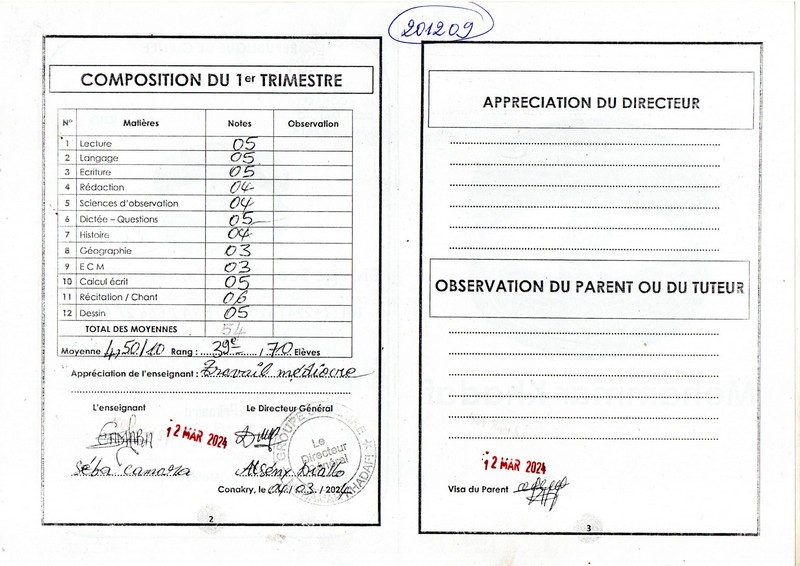 201209
COMPOSITION DU 1er TRIMESTRE
N° Matières Notes Observation
1 Lecture 05
2 Langage 05
3 Ecriture 05
4 Rédaction 04
5 Sciences d'observation 04
6 Dictée – Questions 05
7 Histoire 04
8 Géographie 03
9 E C M 03
10 Calcul écrit 05
11 Récitation / Chant 06
12 Dessin 05
TOTAL DES MOYENNES 54
Moyenne 4,50/10 Rang : 39e / 70 Elèves
Appréciation de l'enseignant : Travail médiocre
L'enseignant Le Directeur Général
12 MAR 2024
Le Directeur Général
KHADAFI
Séba Camara Alsény Diallo
Conakry, le 04 / 03 / 2024
2
APPRECIATION DU DIRECTEUR
OBSERVATION DU PARENT OU DU TUTEUR
12 MAR 2024
Visa du Parent
3